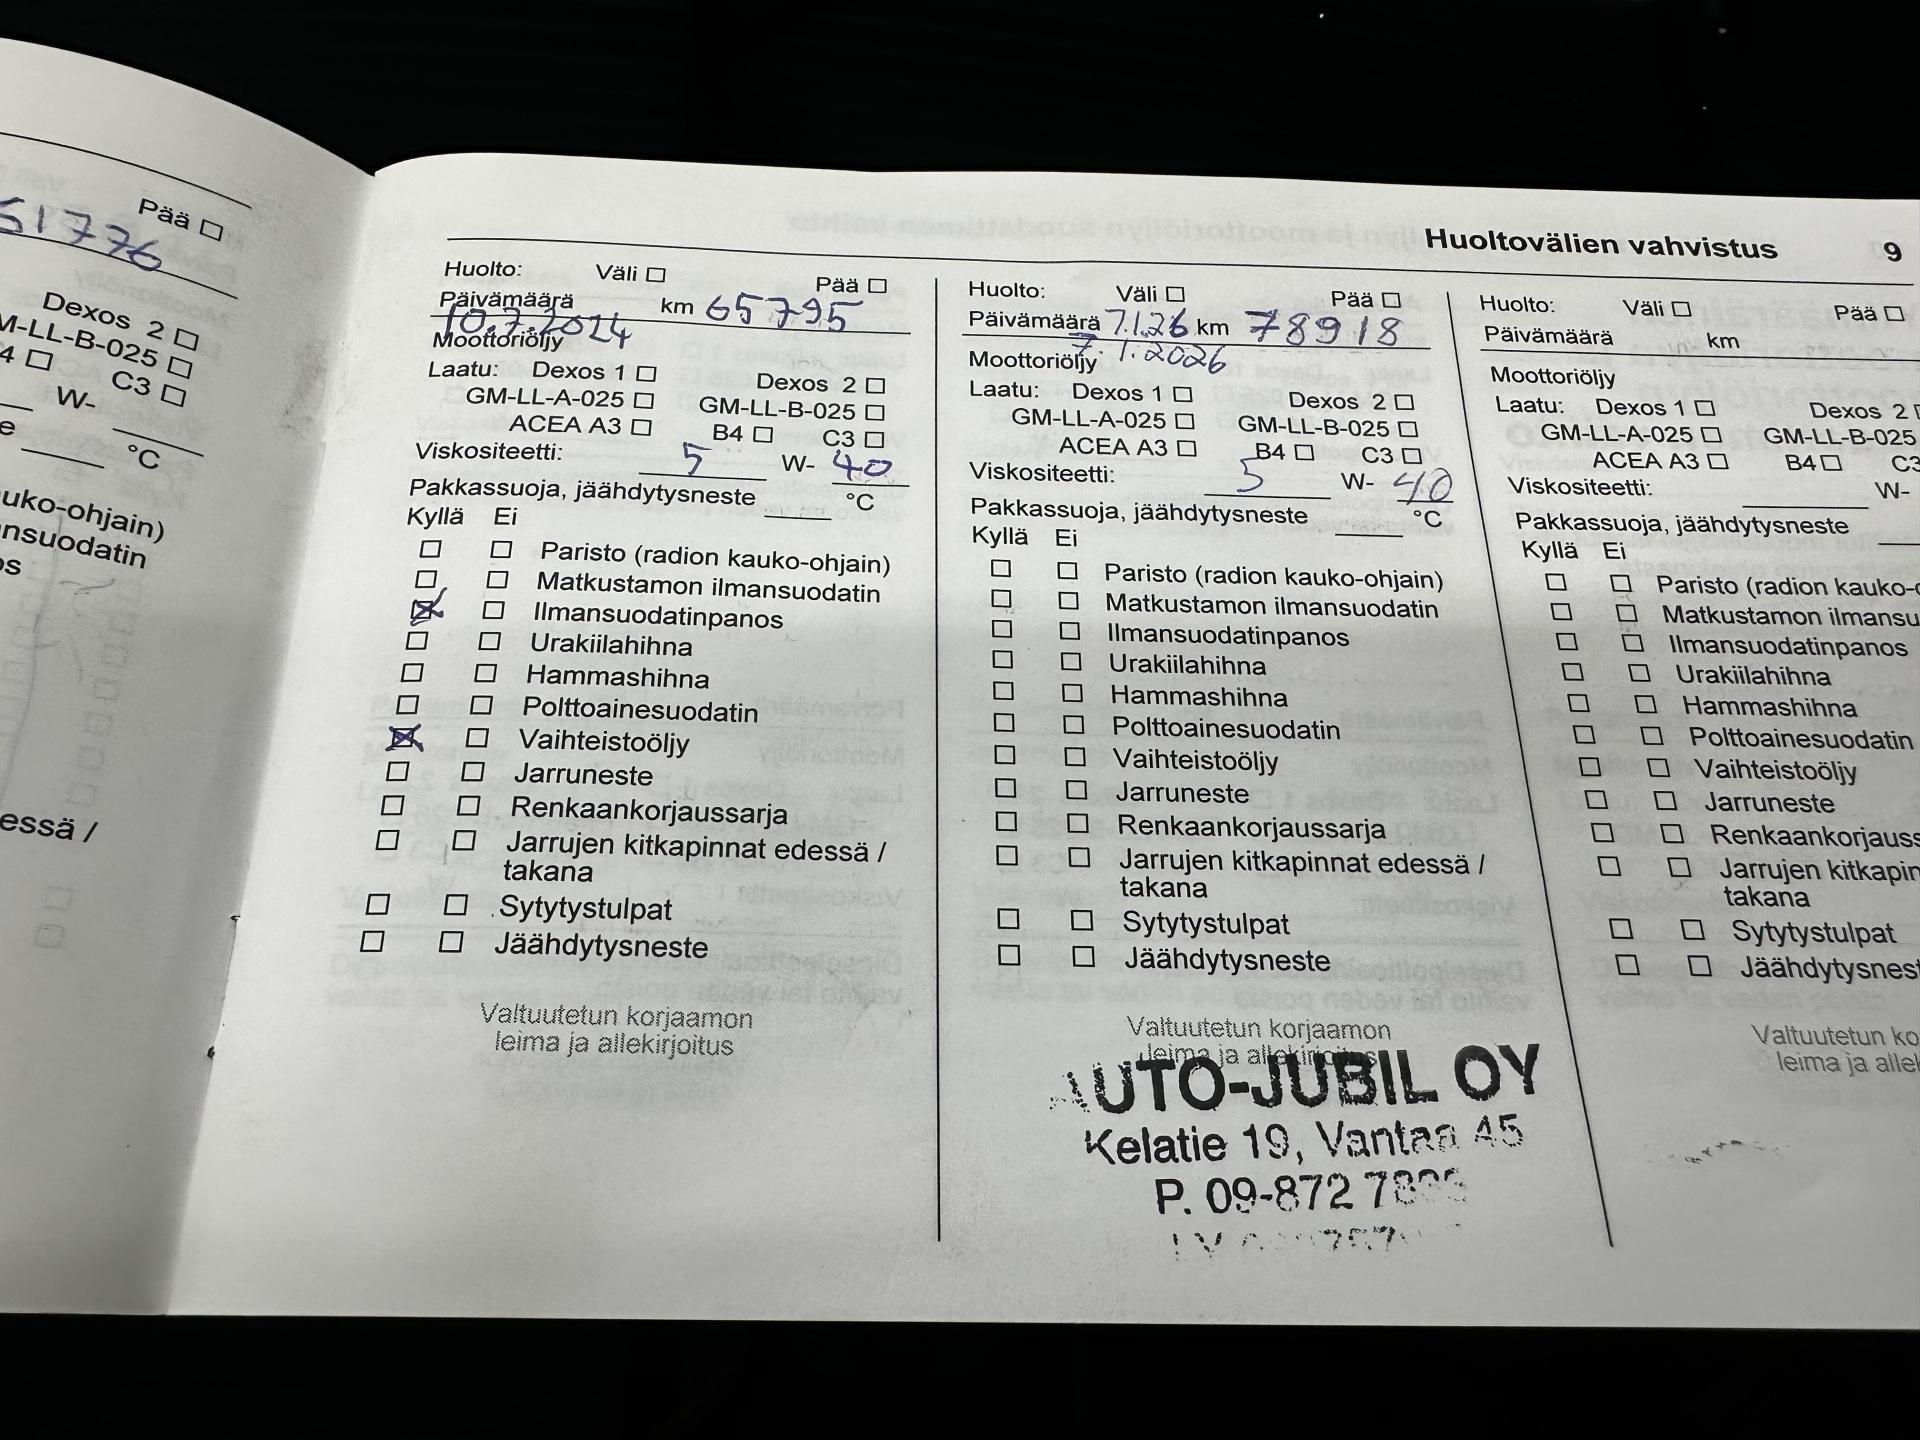 Pää
51776
Dexos 2
M-LL-B-025
4 C3
W-
°C
auko-ohjain)
nsuodatin
os
essä /
Huoltovälien vahvistus 9
Huolto: Väli Pää
Päivämäärä km 65795
10.7.2024
Moottoriöljy
Laatu: Dexos 1 Dexos 2
GM-LL-A-025 GM-LL-B-025
ACEA A3 B4 C3
Viskositeetti: 5 W- 40
Pakkassuoja, jäähdytysneste °C
Kyllä Ei
Paristo (radion kauko-ohjain)
Matkustamon ilmansuodatin
Ilmansuodatinpanos
Urakiilahihna
Hammashihna
Polttoainesuodatin
Vaihteistoöljy
Jarruneste
Renkaankorjaussarja
Jarrujen kitkapinnat edessä /
takana
Sytytystulpat
Jäähdytysneste
Valtuutetun korjaamon
leima ja allekirjoitus
Huolto: Väli Pää
Päivämäärä 7.1.26 km 78918
7.1.2026
Moottoriöljy
Laatu: Dexos 1 Dexos 2
GM-LL-A-025 GM-LL-B-025
ACEA A3 B4 C3
Viskositeetti: 5 W- 40
Pakkassuoja, jäähdytysneste °C
Kyllä Ei
Paristo (radion kauko-ohjain)
Matkustamon ilmansuodatin
Ilmansuodatinpanos
Urakiilahihna
Hammashihna
Polttoainesuodatin
Vaihteistoöljy
Jarruneste
Renkaankorjaussarja
Jarrujen kitkapinnat edessä /
takana
Sytytystulpat
Jäähdytysneste
Valtuutetun korjaamon
leima ja allekirjoitus
AUTO-JUBIL OY
Kelatie 19, Vantaa 45
P. 09-872
Huolto: Väli Pää
Päivämäärä km
Moottoriöljy
Laatu: Dexos 1 Dexos 2
GM-LL-A-025 GM-LL-B-025
ACEA A3 B4 C3
Viskositeetti: W-
Pakkassuoja, jäähdytysneste
Kyllä Ei
Paristo (radion kauko-o
Matkustamon ilmansu
Ilmansuodatinpanos
Urakiilahihna
Hammashihna
Polttoainesuodatin
Vaihteistoöljy
Jarruneste
Renkaankorjauss
Jarrujen kitkapin
takana
Sytytystulpat
Jäähdytysnest
Valtuutetun ko
leima ja allek